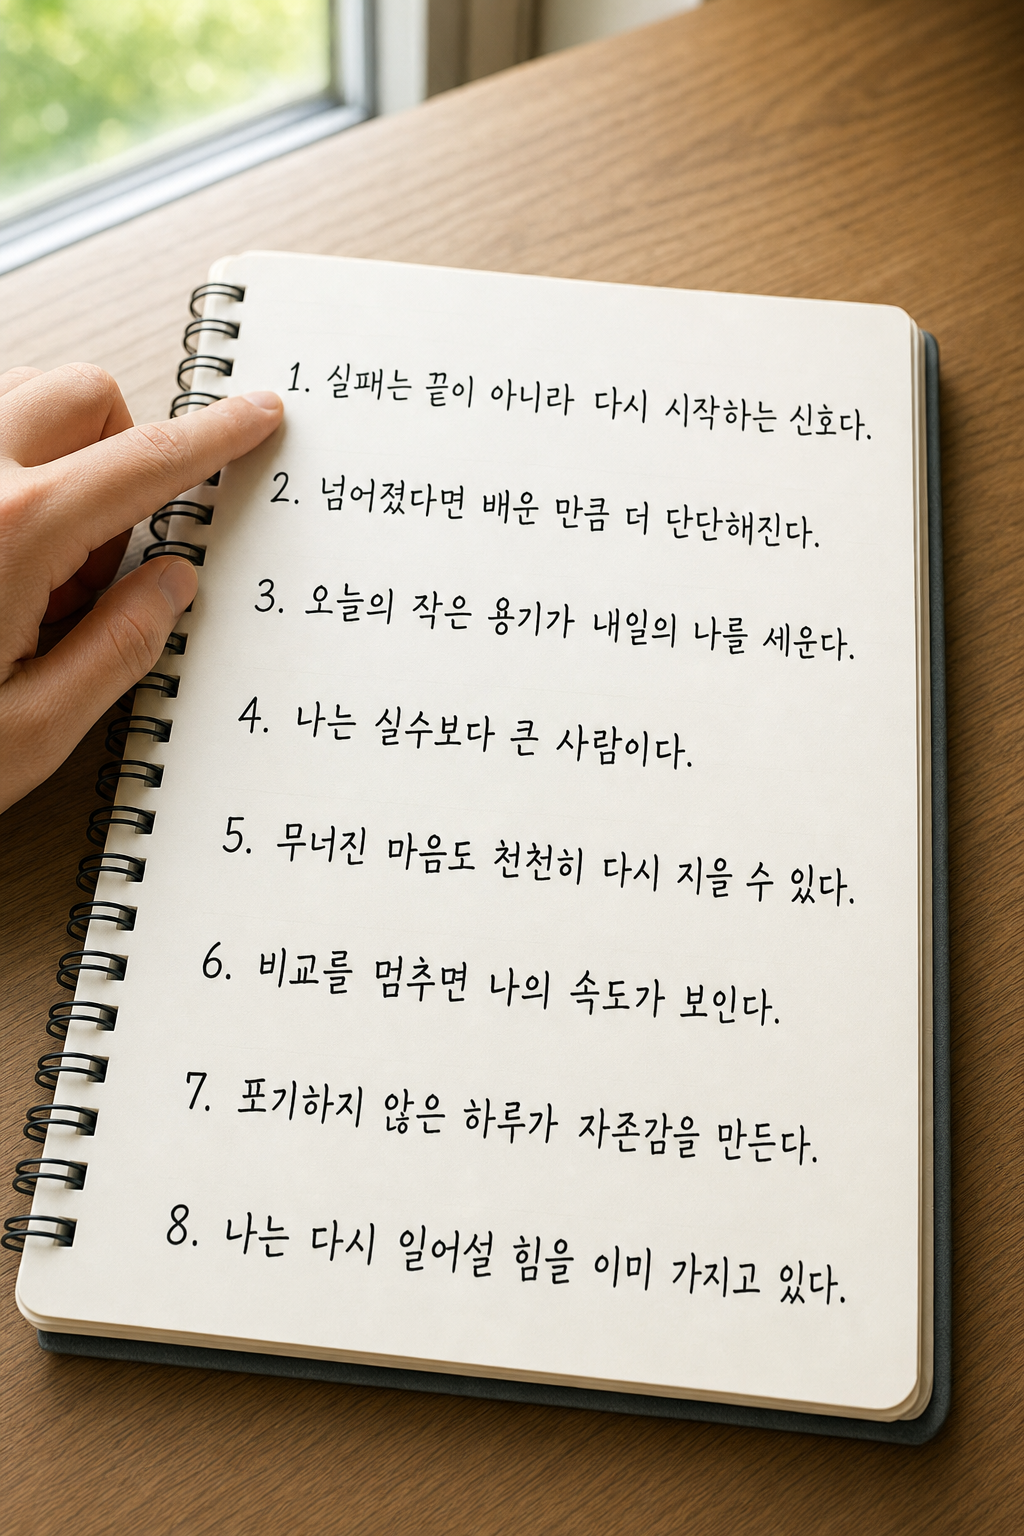 1. 실패는 끝이 아니라 다시 시작하는 신호다.
2. 넘어졌다면 배운 만큼 더 단단해진다.
3. 오늘의 작은 용기가 내일의 나를 세운다.
4. 나는 실수보다 큰 사람이다.
5. 무너진 마음도 천천히 다시 지을 수 있다.
6. 비교를 멈추면 나의 속도가 보인다.
7. 포기하지 않은 하루가 자존감을 만든다.
8. 나는 다시 일어설 힘을 이미 가지고 있다.